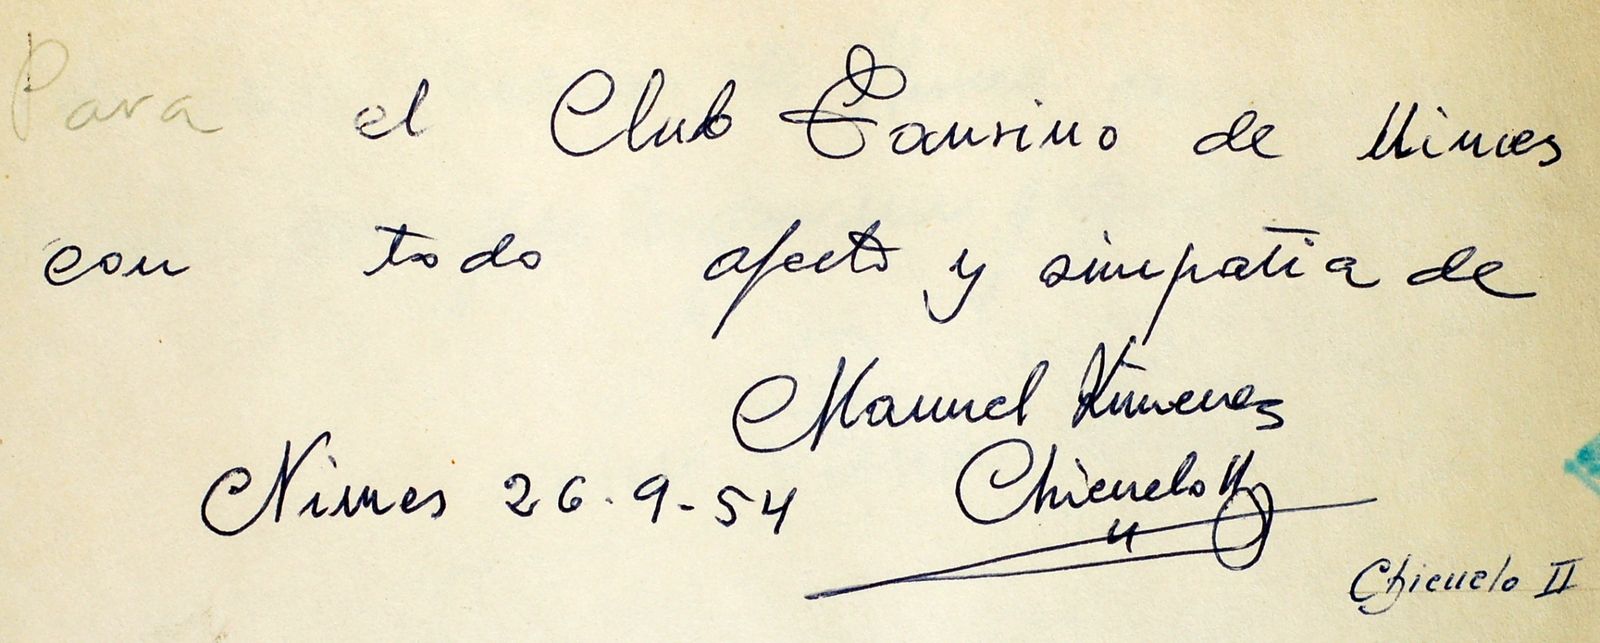 Para el Club Taurino de Nimes
con todo afecto y simpatia de
Manuel Ximenes
Nimes 26-9-54 Chicuelo II
Chicuelo II